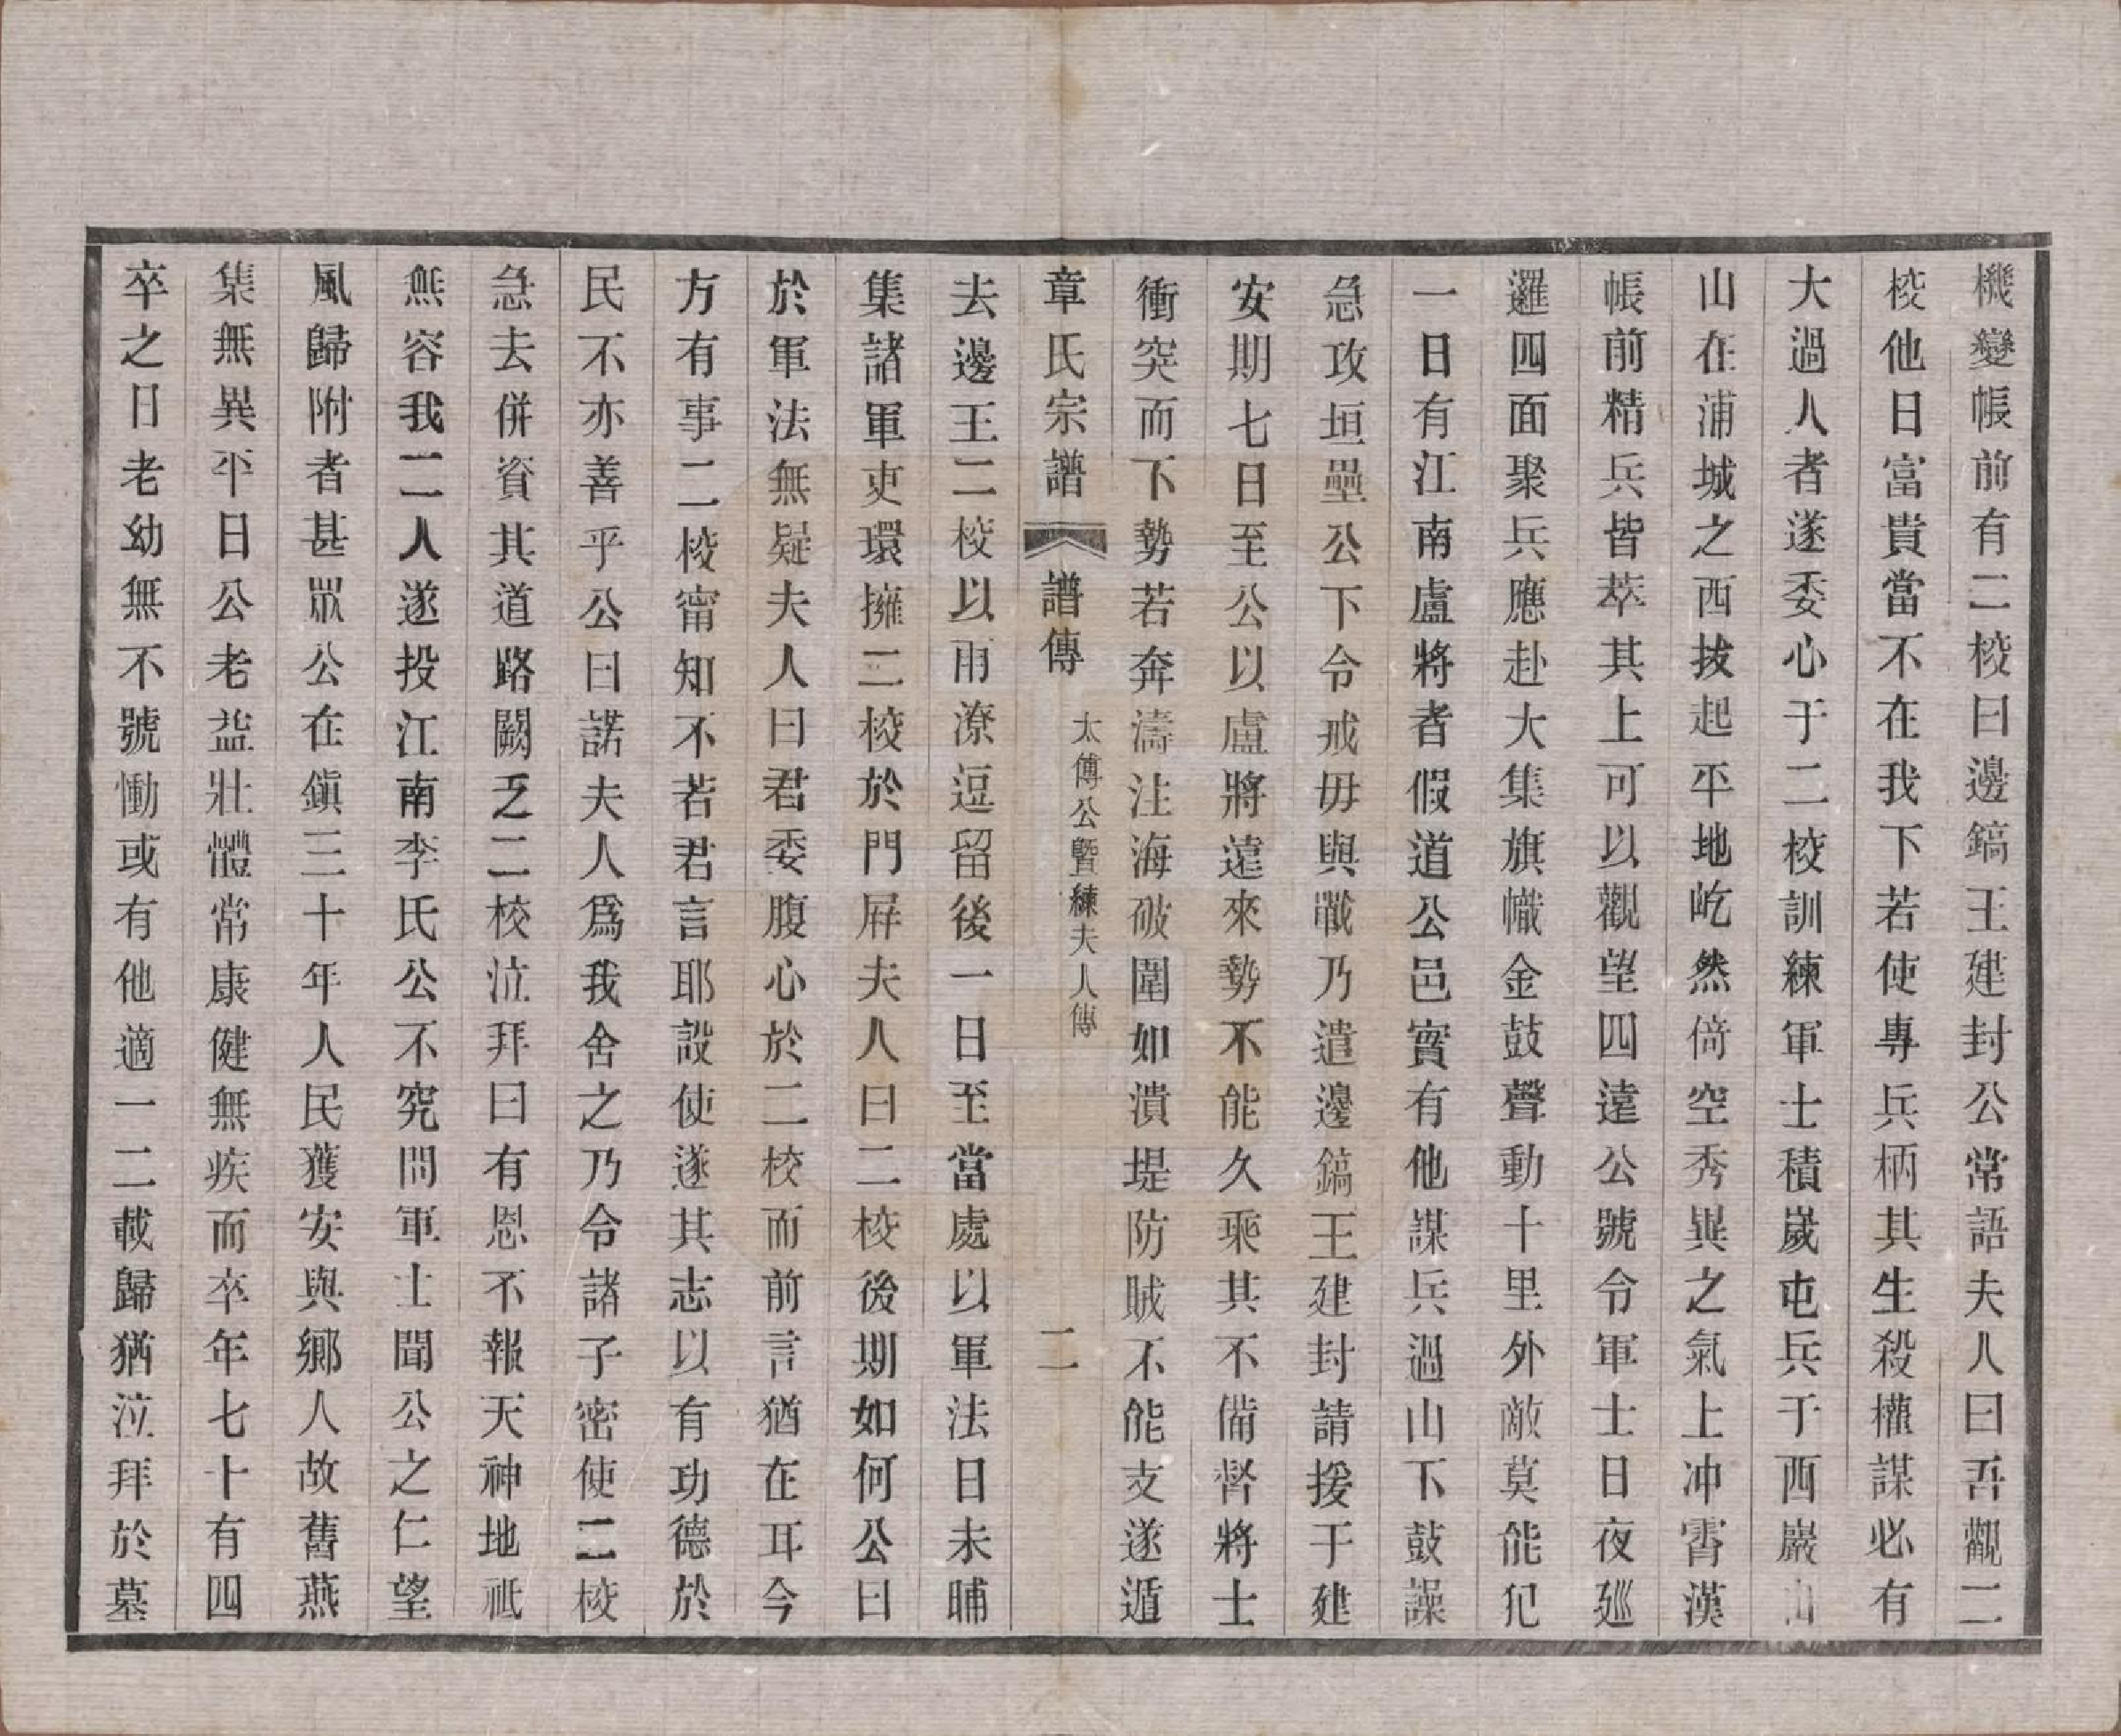 機變帳前有二校曰邊鎬王建封公常語夫人曰吾觀二
校他日富貴當不在我下若使專兵柄其生殺權謀必有
大過人者遂委心于二校訓練軍士積歲屯兵于西巖山
山在浦城之西拔起平地屹然倚空秀異之氣上冲霄漢
帳前精兵皆萃其上可以觀望四遠公號令軍士日夜廵
邏四面聚兵應赴大集旗幟金鼓聲動十里外敵莫能犯
一日有江南盧將者假道公邑實有他謀兵過山下鼓譟
急攻垣壘公下令戒毋與戰乃遣邊鎬王建封請援于建
安期七日至公以盧將遠來勢不能久乘其不備督將士
衝突而下勢若奔濤注海破圍如潰堤防賊不能支遂遁
章氏宗譜 譜傳 太傅公曁練夫人傳 二
去邊王二校以雨潦逗留後一日至當處以軍法日未晡
集諸軍吏環擁二校於門屛夫人曰二校後期如何公曰
於軍法無疑夫人曰君委腹心於二校而前言猶在耳今
方有事二校甯知不若君言耶設使遂其志以有功德於
民不亦善乎公曰諾夫人爲我舍之乃令諸子密使二校
急去併資其道路闕乏二校泣拜曰有恩不報天神地祗
無容我二人遂投江南李氏公不究問軍士聞公之仁望
風歸附者甚眾公在鎭三十年人民獲安與鄕人故舊燕
集無異平日公老益壯體常康健無疾而卒年七十有四
卒之日老幼無不號慟或有他適一二載歸猶泣拜於墓